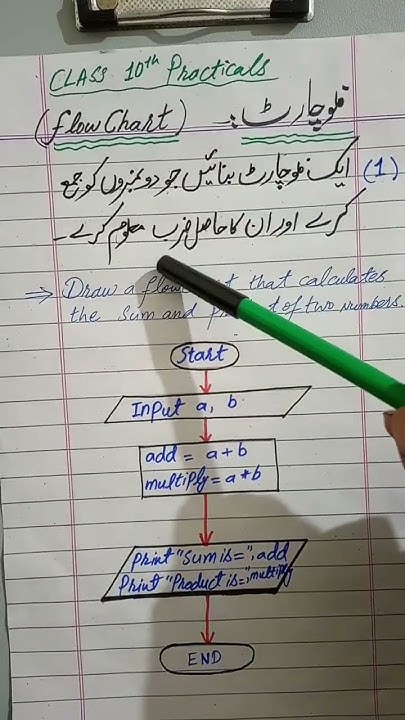 CLASS 10th Practicals
(Flow Chart) فلوچارٹ :-
(1) ایک فلوچارٹ بنائیں جو دو نمبروں کو جمع
کرے اور ان کا حاصل ضرب معلوم کرے۔
⇒ Draw a that calculates
the Sum and of two numbers.
Start
Input a, b
add = a+b
multiply = a*b
Print "Sum is=", add
Print "Product is=", multiply
END